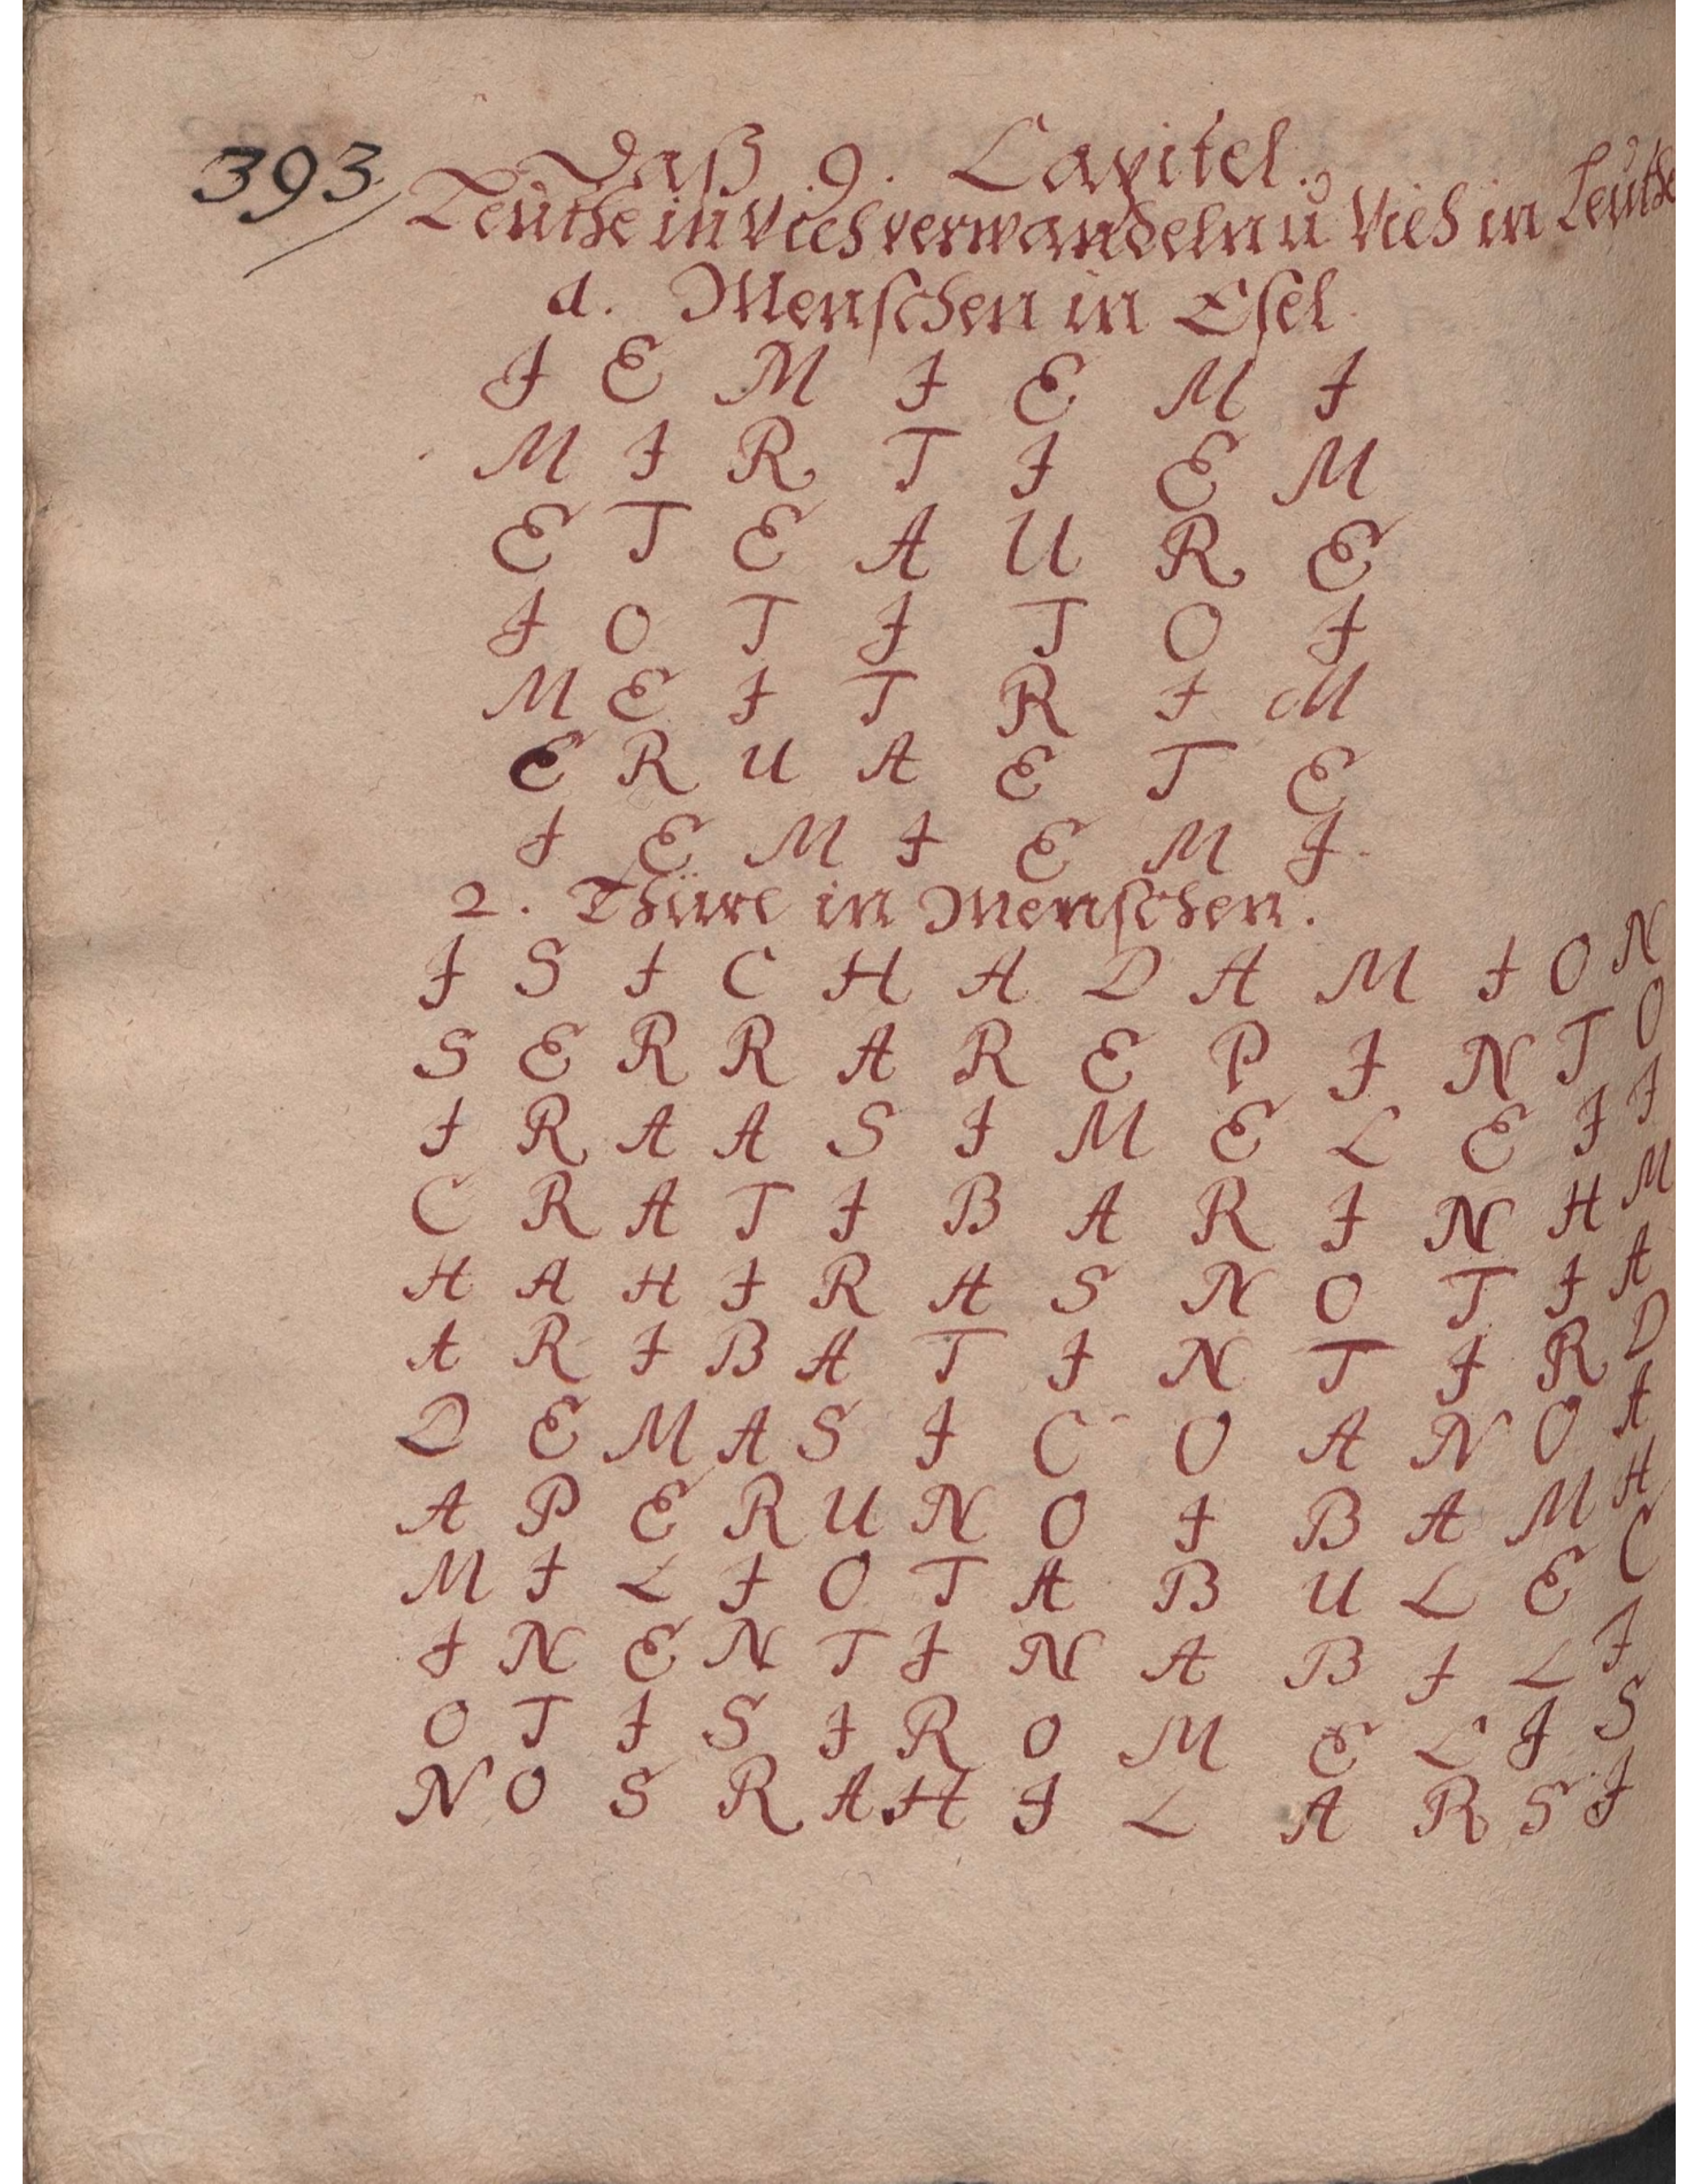 393
Daß 9. Capitel.
Leuthe in Vieh verwandeln u. Vieh in Leuthe
a. Menschen in Esel
I E M I E M I
M I R T I E M
E T E A U R E
I O T I T O I
M E I T R I M
E R U A E T E
I E M I E M I
2. Thüre in Menschen.
I S I C H A D A M I O N
S E R R A R E P I N T O
I R A A S I M E L E I I
C R A T I B A R I N H M
H A H I R A S N O T I A
A R I B A T I N T I R D
D E M A S I C O A N O A
A P E R U N O I B A M H
M I L I O T A B U L E C
I N E N T I N A B I L I
O T I S I R O M E L I S
N O S R A H I L A R S I